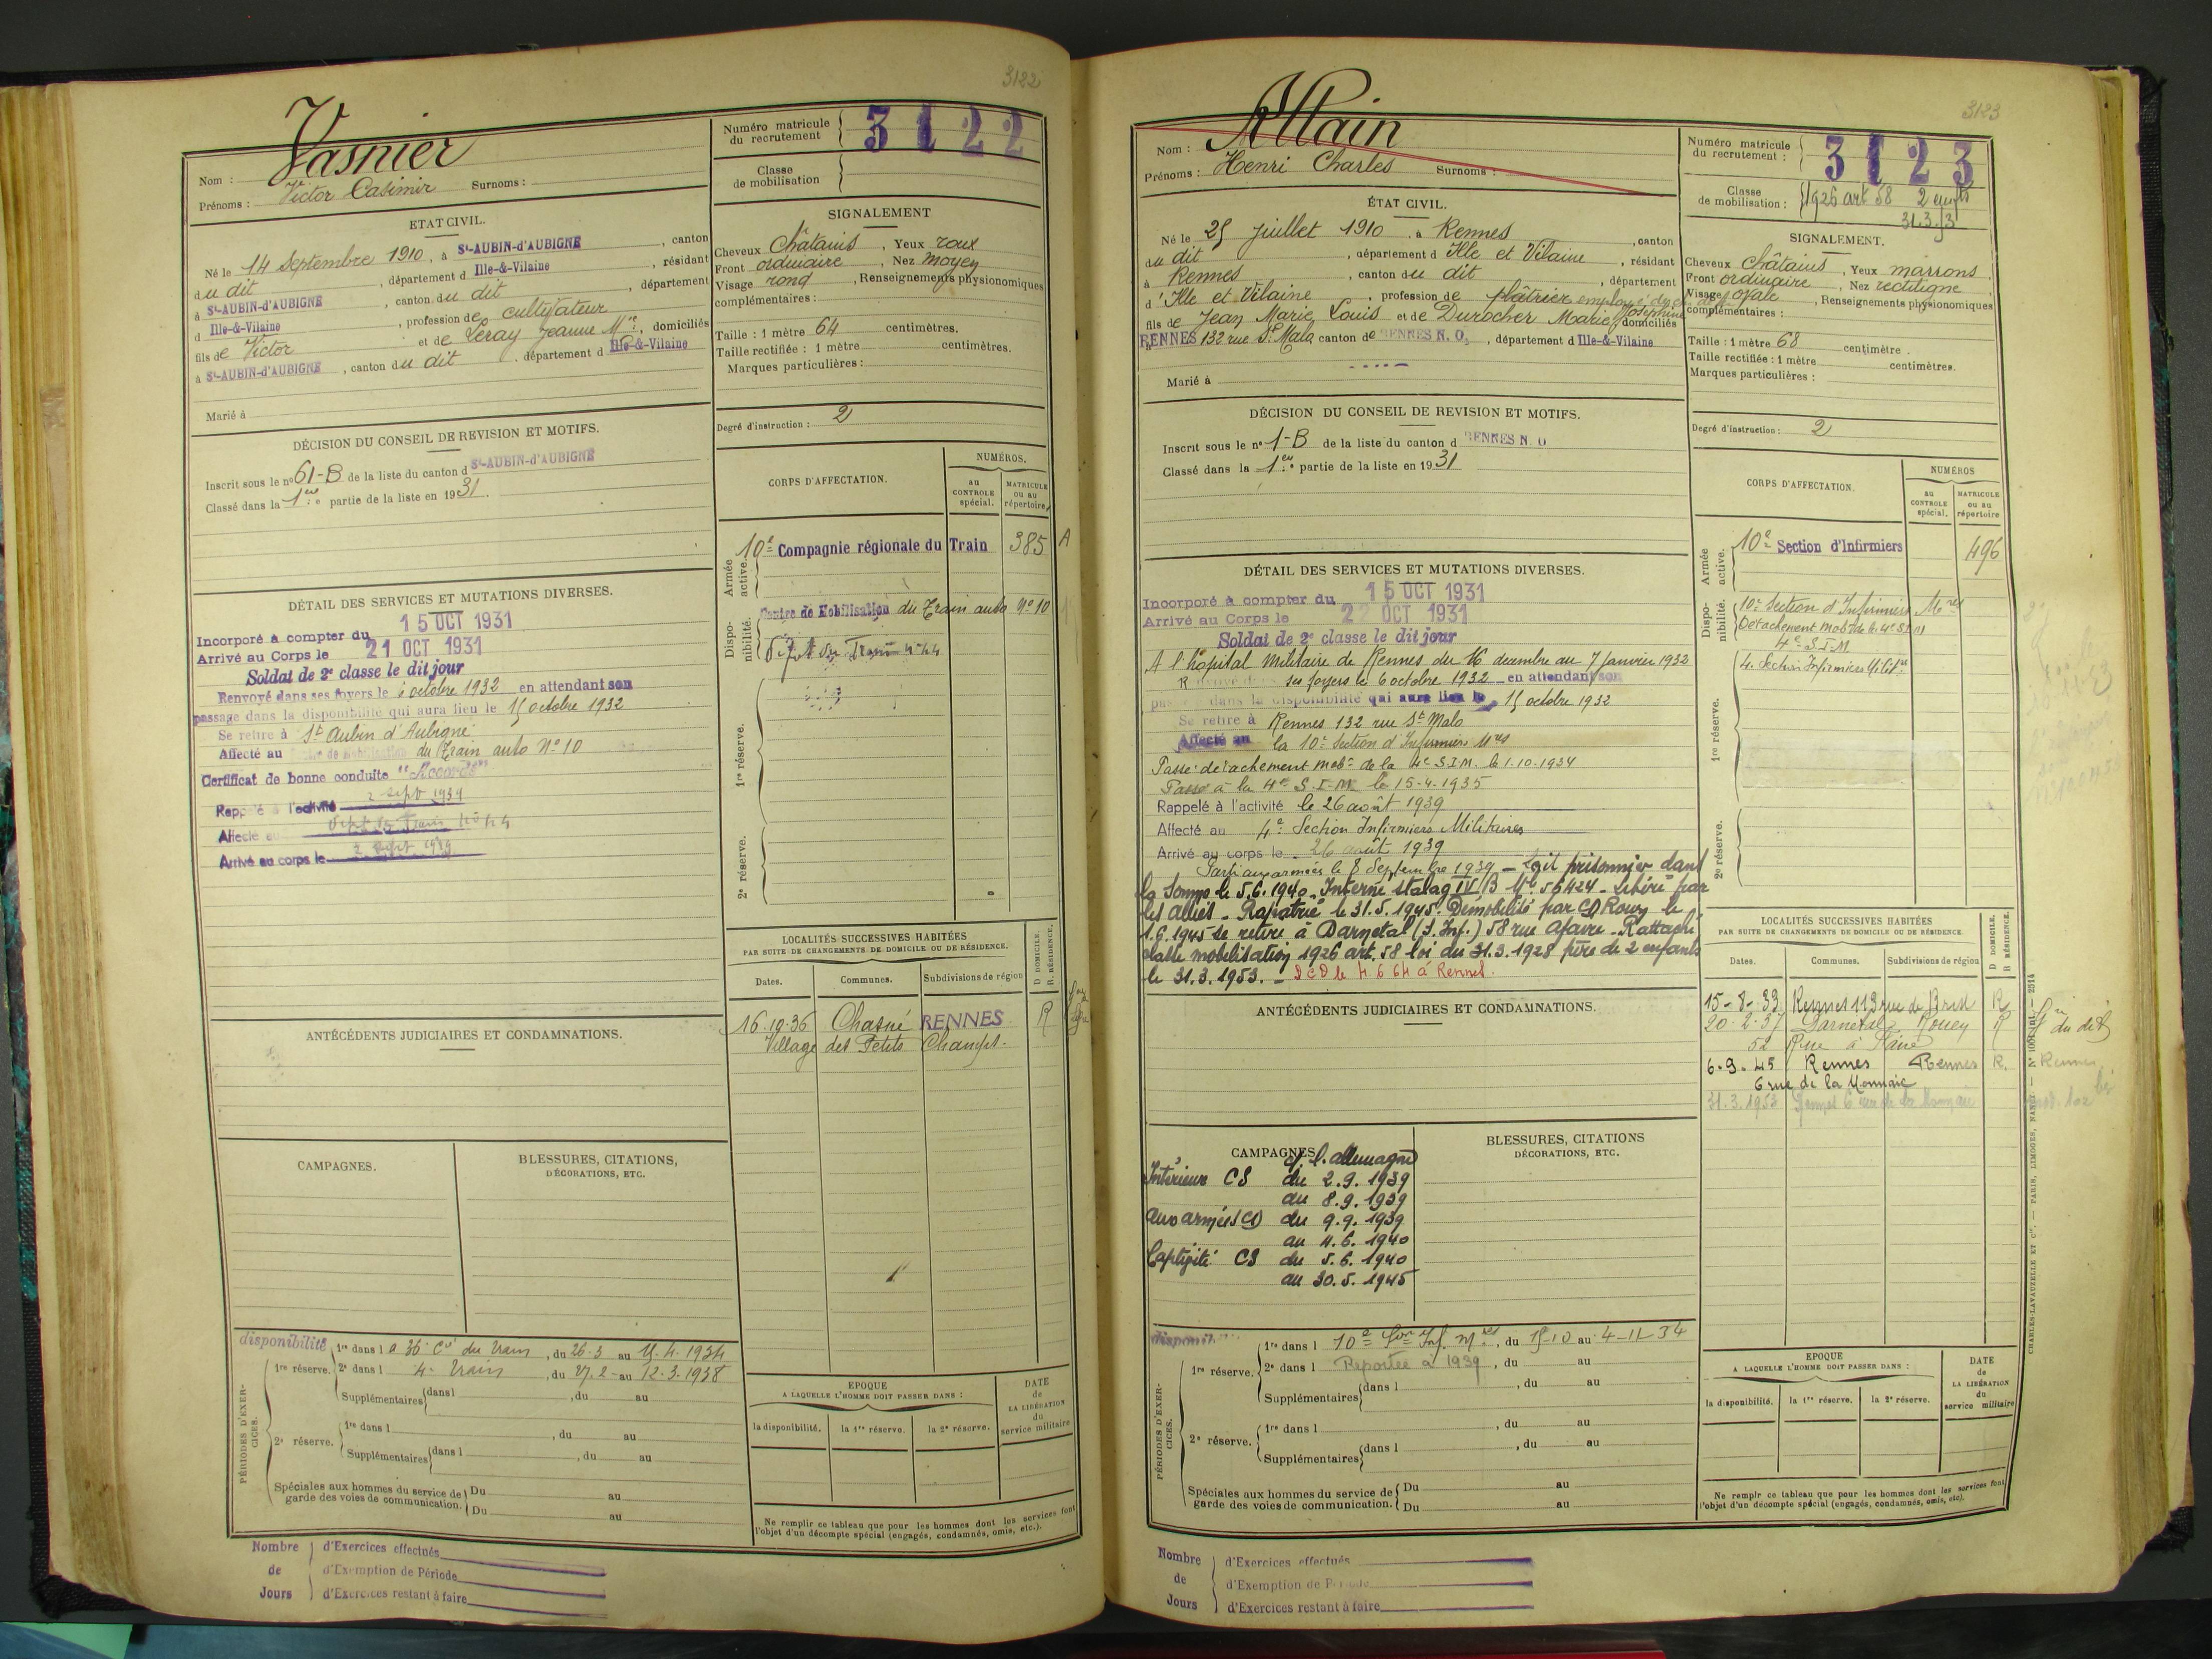 3122
Nom : Vasnier
Prénoms : Victor Casimir Surnoms :
Numéro matricule du recrutement 3122
Classe de mobilisation
ETAT CIVIL.
Né le 14 Septembre 1910, à St-AUBIN-d'AUBIGNE, canton
du dit, département d Ille-&-Vilaine, résidant
à St-AUBIN-d'AUBIGNE, canton du dit, département
d Ille-&-Vilaine, profession de cultivateur
fils de Victor et de Leray Jeanne Mie, domiciliés
à St-AUBIN-d'AUBIGNE, canton du dit, département d Ille-&-Vilaine
Marié à
SIGNALEMENT
Cheveux Châtains, Yeux roux
Front ordinaire, Nez moyen
Visage rond, Renseignements physionomiques
complémentaires :
Taille : 1 mètre 64 centimètres.
Taille rectifiée : 1 mètre centimètres.
Marques particulières :
Degré d'instruction : 2
DÉCISION DU CONSEIL DE REVISION ET MOTIFS.
Inscrit sous le no 61-B de la liste du canton d St-AUBIN-d'AUBIGNE
Classé dans la 1ere partie de la liste en 1931.
CORPS D'AFFECTATION.
NUMÉROS.
au CONTROLE spécial.
MATRICULE ou au répertoire
Armée active.
10e Compagnie régionale du Train 385 A
Dispo-nibilité.
Centre de Mobilisation du Train auto No 10
Dépôt du Train no 44
1re réserve.
2e réserve.
DÉTAIL DES SERVICES ET MUTATIONS DIVERSES.
Incorporé à compter du 15 OCT 1931
Arrivé au Corps le 21 OCT 1931
Soldat de 2e classe le dit jour
Renvoyé dans ses foyers le 6 octobre 1932 en attendant son
passage dans la disponibilité qui aura lieu le 15 octobre 1932
Se retire à St Aubin d'Aubigné
Affecté au Centre de Mobilisation du Train auto No 10
Certificat de bonne conduite "Accordé"
Rappelé à l'activité 2 sept 1939
Affecté au Dépôt du Train no 44
Arrivé au corps le 2 sept 1939
LOCALITÉS SUCCESSIVES HABITÉES
PAR SUITE DE CHANGEMENTS DE DOMICILE OU DE RÉSIDENCE.
Dates. Communes. Subdivisions de région
D DOMICILE. R. RÉSIDENCE.
16.10.36 Chasné RENNES R
Village des Petits Champs.
ANTÉCÉDENTS JUDICIAIRES ET CONDAMNATIONS.
CAMPAGNES.
BLESSURES, CITATIONS, DÉCORATIONS, ETC.
disponibilité
PÉRIODES D'EXER-CICES.
1re réserve.
1re dans l a 36e Cie du Train, du 26-3 au 11.4.1934
2e dans l 4e Train, du 27.2 au 12.3.1938
Supplémentaires dans l , du au
2e réserve.
1re dans l , du au
Supplémentaires dans l , du au
Spéciales aux hommes du service de garde des voies de communication. Du au
Du au
EPOQUE
A LAQUELLE L'HOMME DOIT PASSER DANS :
la disponibilité. la 1re réserve. la 2e réserve.
DATE de LA LIBÉRATION du service militaire
Ne remplir ce tableau que pour les hommes dont les services font
l'objet d'un décompte spécial (engagés, condamnés, omis, etc.).
Nombre de Jours
d'Exercices effectués
d'Exemption de Période
d'Exercices restant à faire
3123
Nom : Allain
Prénoms : Henri Charles Surnoms :
Numéro matricule du recrutement : 3123
Classe de mobilisation : 1926 art 58 2 enfts
31.3.53
ÉTAT CIVIL.
Né le 25 juillet 1910, à Rennes, canton
du dit, département d Ille et Vilaine, résidant
à Rennes, canton du dit, département
d'Ille et Vilaine, profession de plâtrier
fils de Jean Marie Louis et de Durocher Marie Joséphine domiciliés
RENNES 132 rue St Malo canton de RENNES N. O., département d Ille-&-Vilaine
Marié à
SIGNALEMENT.
Cheveux Châtains, Yeux marrons
Front ordinaire, Nez rectiligne
Visage ovale, Renseignements physionomiques
complémentaires :
Taille : 1 mètre 68 centimètre.
Taille rectifiée : 1 mètre centimètres.
Marques particulières :
Degré d'instruction : 2
DÉCISION DU CONSEIL DE REVISION ET MOTIFS.
Inscrit sous le no 1-B de la liste du canton d RENNES N. O
Classé dans la 1ere partie de la liste en 1931
CORPS D'AFFECTATION.
NUMÉROS
au CONTROLE spécial.
MATRICULE ou au répertoire
Armée active.
10e Section d'Infirmiers 496
Dispo-nibilité.
10e Section d'Infirmiers Mres
Détachement mobr de la 4e S.I.M
4e S.I.M
1re réserve.
4. Section Infirmiers Militres
2e réserve.
DÉTAIL DES SERVICES ET MUTATIONS DIVERSES.
Incorporé à compter du 15 OCT 1931
Arrivé au Corps le 22 OCT 1931
Soldat de 2e classe le dit jour
A l'hôpital Militaire de Rennes du 16 décembre au 7 Janvier 1932
Renvoyé dans ses foyers le 6 octobre 1932 en attendant son
passage dans la disponibilité qui aura lieu le 15 octobre 1932
Se retire à Rennes 132 rue St Malo
Affecté au la 10e Section d'Infirmiers Mres
Passé détachement mobr de la 4e S.I.M. le 1.10.1934
Passé à la 4e S.I.M. le 15-4-1935
Rappelé à l'activité le 26 août 1939
Affecté au 4e Section Infirmiers Militaires
Arrivé au corps le 26 août 1939
Parti aux armées le 8 Septembre 1939 - Fait prisonnier dans
la Somme le 5.6.1940. Interné stalag IV B No 56424 - Libéré par
les alliés - Rapatrié le 31.5.1945. Démobilisé par CD Rouen le
1.6.1945 se retire à Darnetal (S. Inf.) 58 rue - Rattaché
classe mobilisation 1926 art. 58 loi du 31.3.1928 père de 2 enfants
le 31.3.1953. - DCD le 4 6 64 à Rennes.
LOCALITÉS SUCCESSIVES HABITÉES
PAR SUITE DE CHANGEMENTS DE DOMICILE OU DE RÉSIDENCE.
Dates. Communes. Subdivisions de région
D DOMICILE. R RÉSIDENCE.
15-8-33 Rennes 113 rue de Brest R
20-2-37 Darnetal Rouen R
52 Rue
6.9.45 Rennes Rennes R.
6 rue de la Monnaie
31.3.1953 Rennes 6 rue de la Monnaie
ANTÉCÉDENTS JUDICIAIRES ET CONDAMNATIONS.
CAMPAGNES
c/. l'allemagne
Intérieur CS du 2.9.1939
au 8.9.1939
aux armées CD du 9.9.1939
au 4.6.1940
Captivité CS du 5.6.1940
au 30.5.1945
BLESSURES, CITATIONS DÉCORATIONS, ETC.
PÉRIODES D'EXER-CICES.
1re réserve.
1re dans l 10e Son Inf. Mres, du 15-10 au 4-11-34
2e dans l Reportée à 1939, du au
Supplémentaires dans l , du au
2e réserve.
1re dans l , du au
Supplémentaires dans l , du au
Spéciales aux hommes du service de garde des voies de communication. Du au
Du au
EPOQUE
A LAQUELLE L'HOMME DOIT PASSER DANS :
la disponibilité. la 1re réserve. la 2e réserve.
DATE de LA LIBÉRATION du service militaire
Ne remplir ce tableau que pour les hommes dont les services font
l'objet d'un décompte spécial (engagés, condamnés, omis, etc).
CHARLES-LAVAUZELLE ET Cie. — PARIS, LIMOGES, NANCY
Nombre de Jours
d'Exercices effectués
d'Exemption de Période
d'Exercices restant à faire